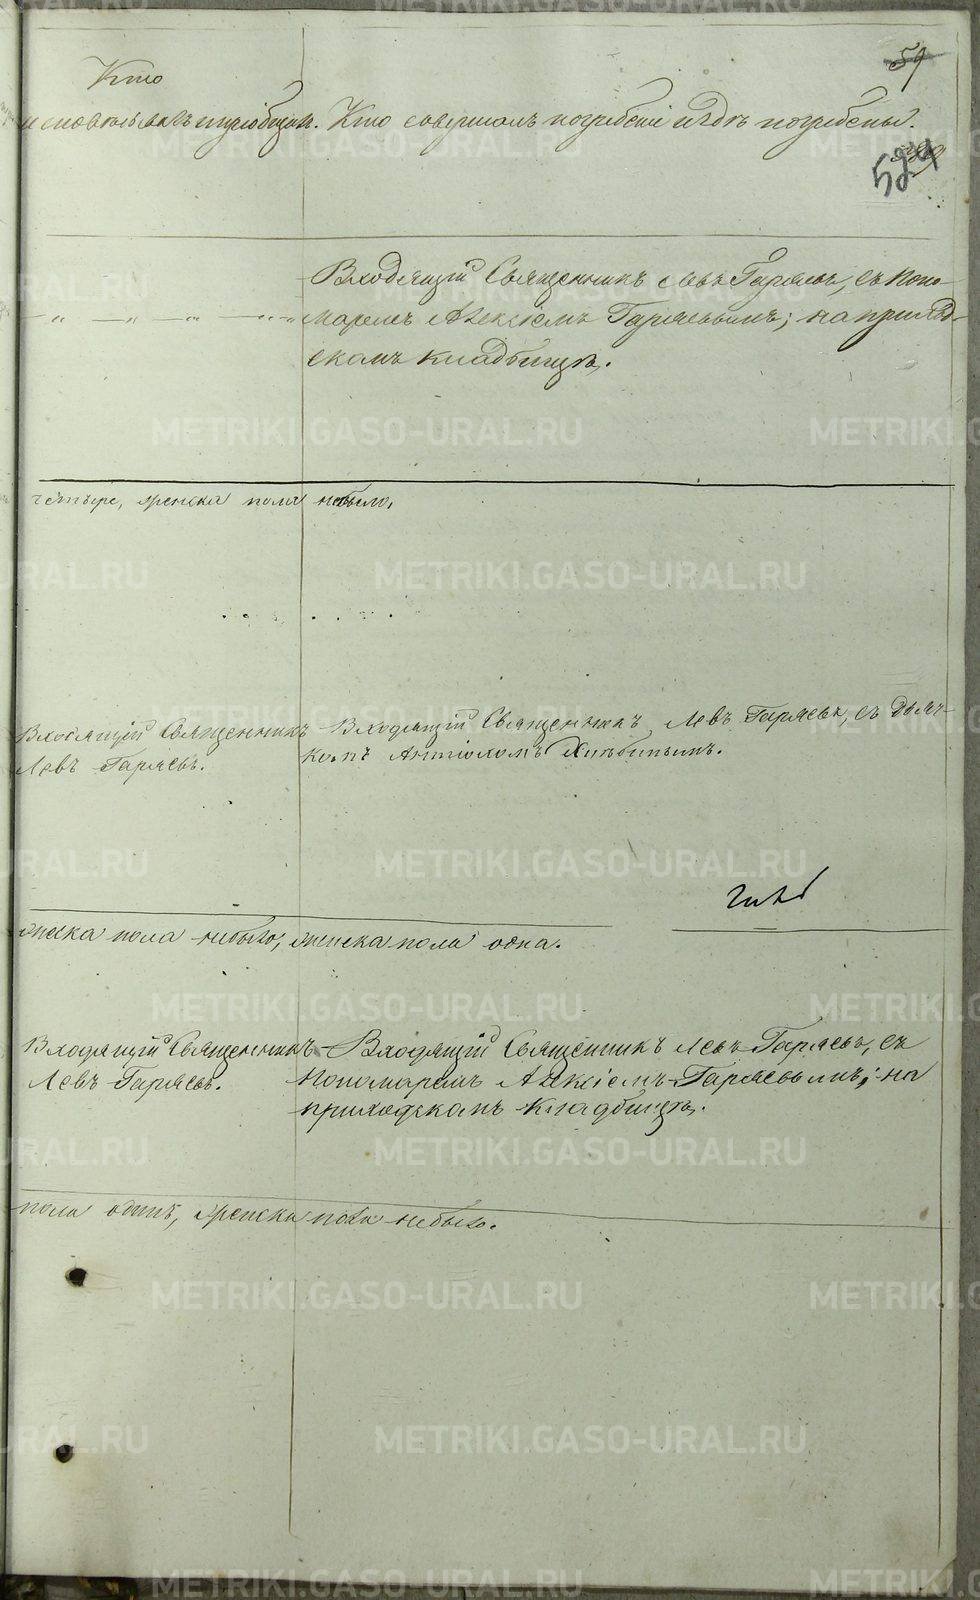 59
Кто
исповѣдывалъ и приобщалъ. Кто совершалъ погребеніе и гдѣ погребены.
524
Входящій Священникъ Левъ Гаряевъ, съ Поно-
маремъ Алексѣемъ Гаряевымъ; на приход-
скомъ кладбищѣ.
четыре, женска пола небыло.
Входящій Священникъ
Левъ Гаряевъ.
Входящій Священникъ Левъ Гаряевъ, съ дьяч-
комъ
пола небыло, женска пола одна.
Входящій Священникъ
Левъ Гаряевъ.
Входящій Священникъ Левъ Гаряевъ, съ
Пономаремъ Алексѣемъ Гаряевымъ; на
приходскомъ кладбищѣ.
пола одинъ, женска пола небыло.
METRIKI.GASO-URAL.RU